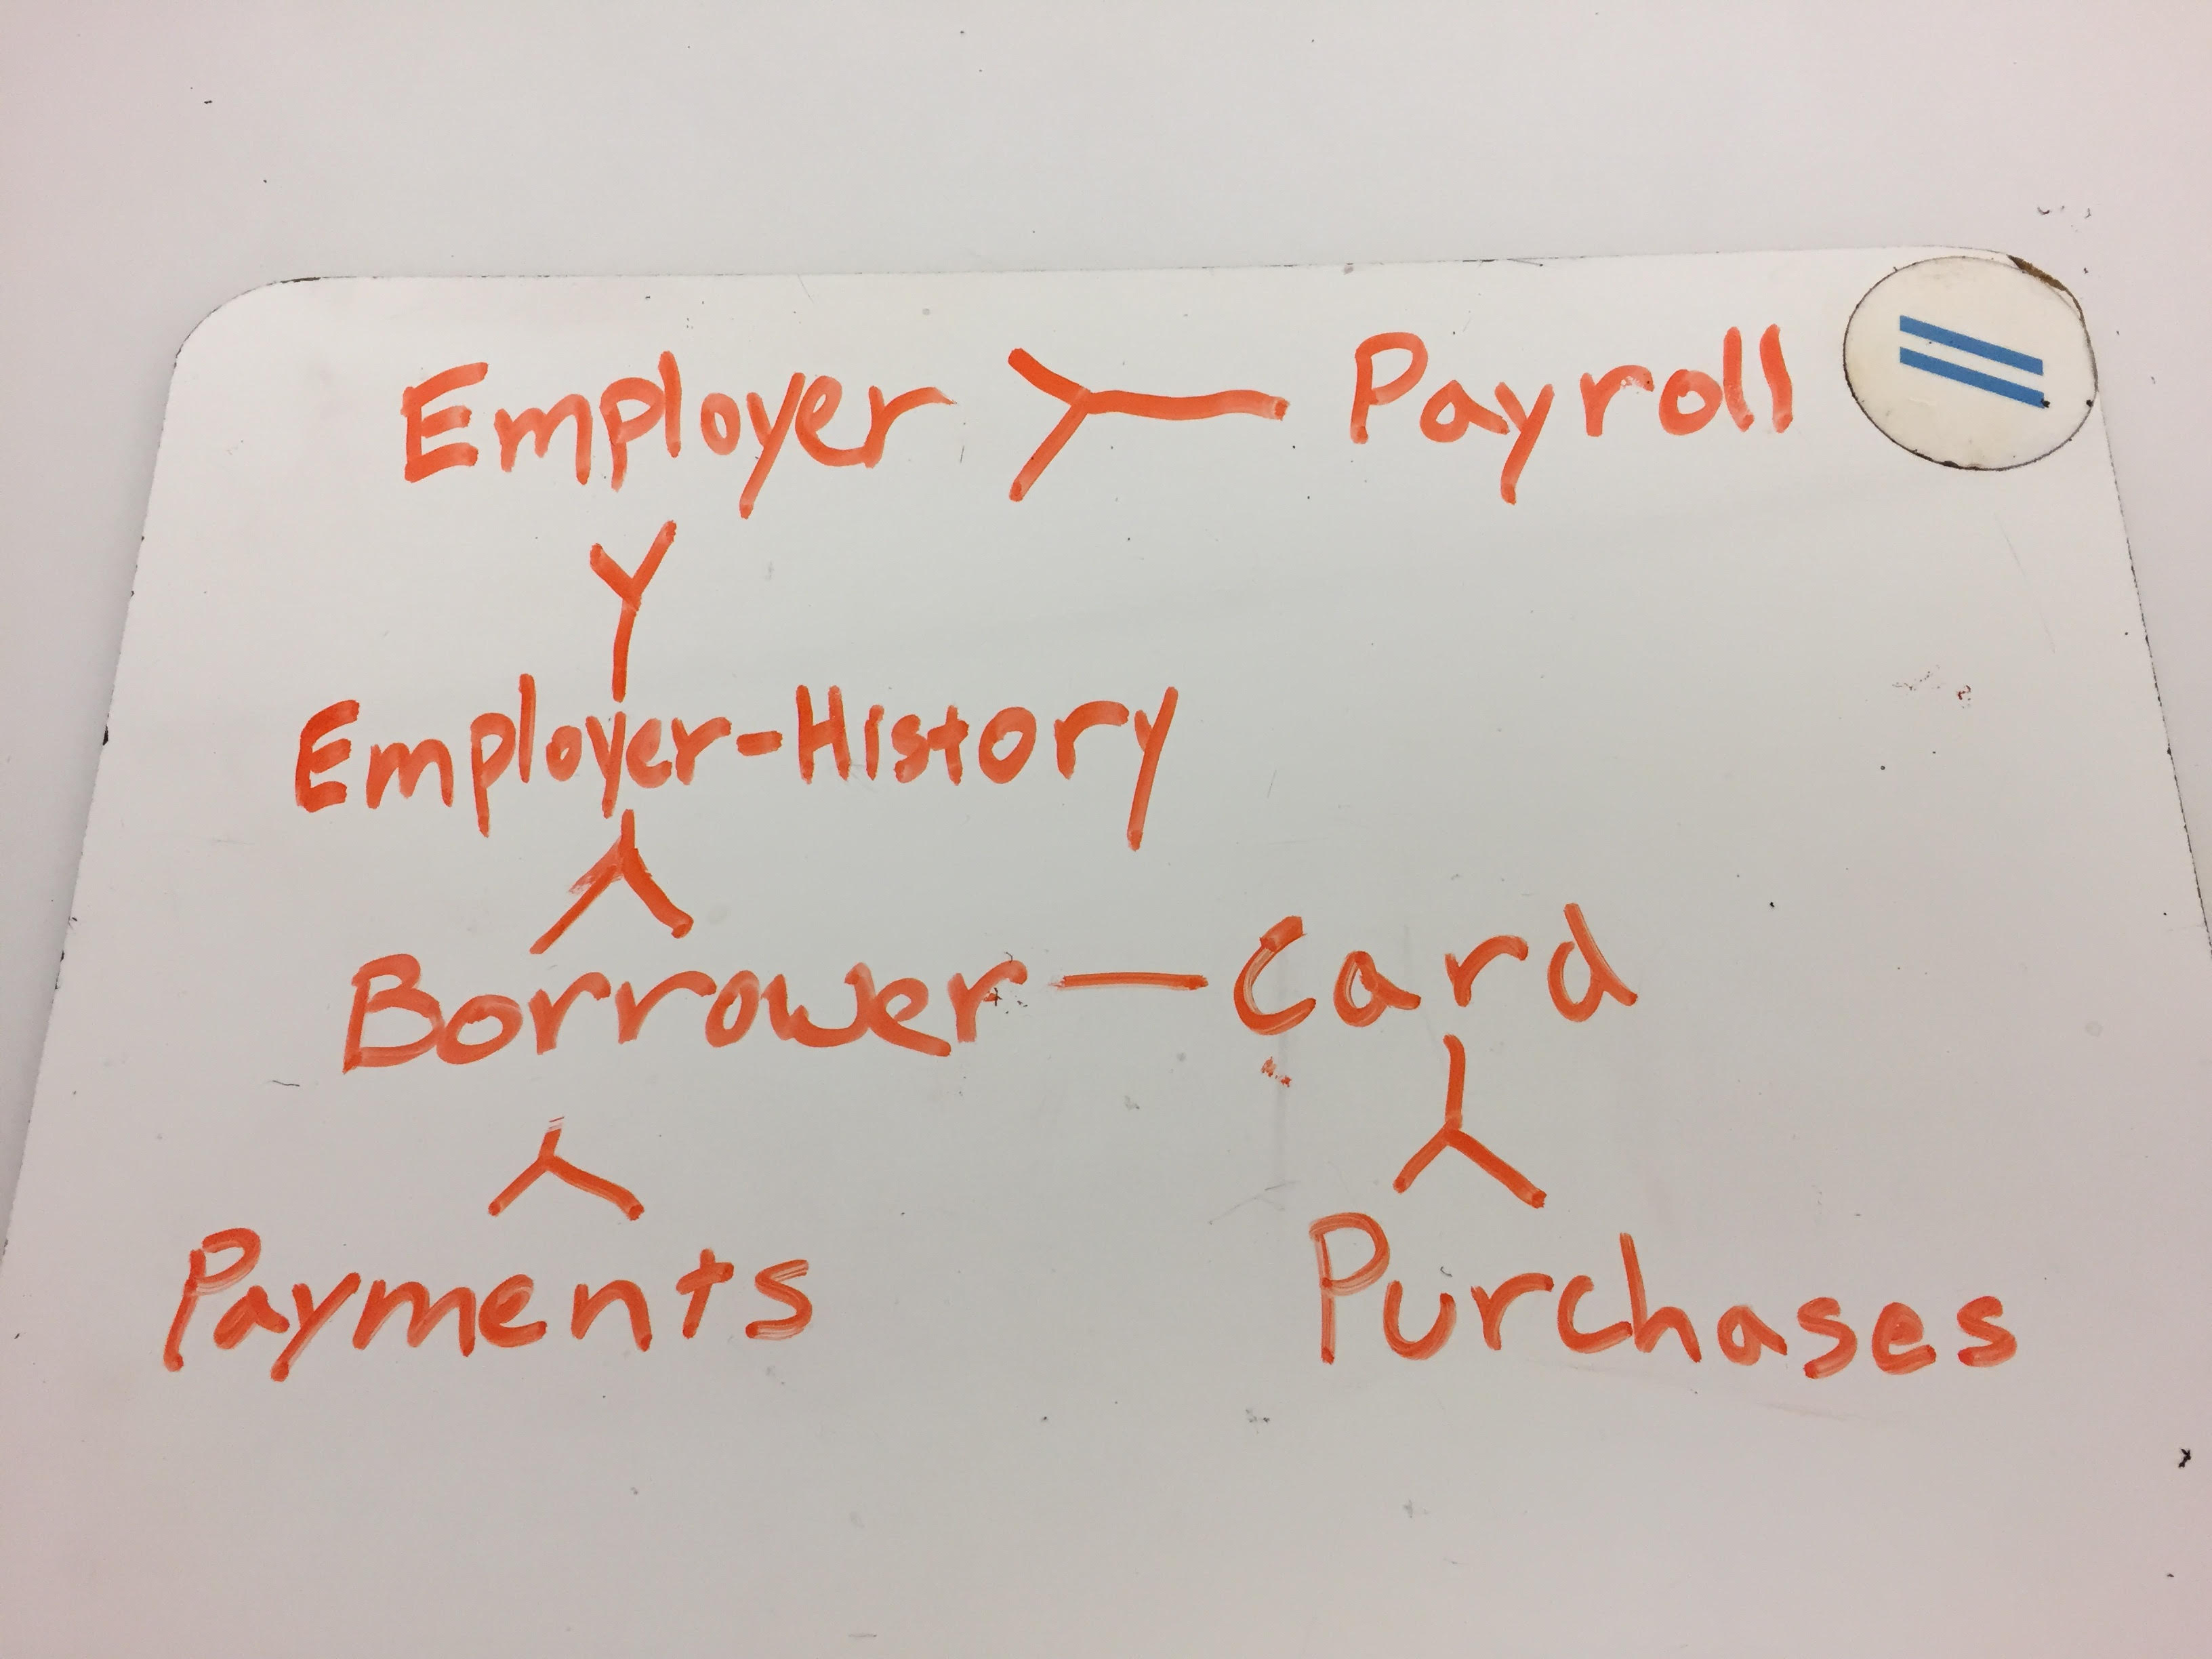 Employer Payroll
Employer-History
Borrower Card
Payments Purchases